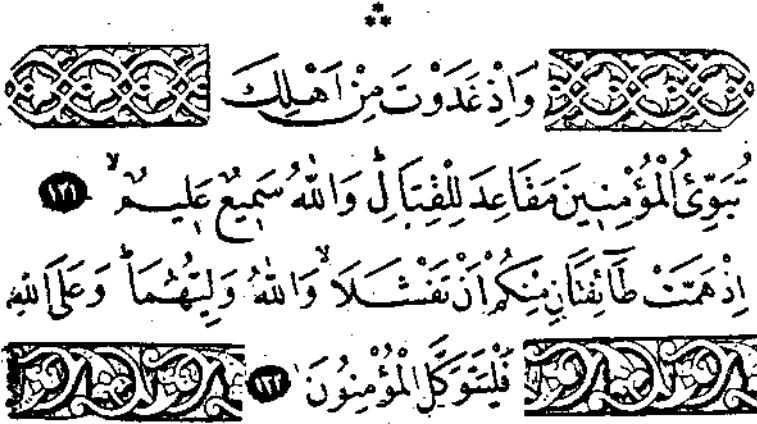 وَاِذْ غَدَوْتَ مِنْ اَهْلِكَ
تُبَوِّئُ الْمُؤْمِنٖينَ مَقَاعِدَ لِلْقِتَالِؕ وَاللّٰهُ سَمٖيعٌ عَلٖيمٌۙ ١٢١
اِذْ هَمَّتْ طَٓائِفَتَانِ مِنْكُمْ اَنْ تَفْشَلَاۙ وَاللّٰهُ وَلِيُّهُمَاؕ وَعَلَى اللّٰهِ
فَلْيَتَوَكَّلِ الْمُؤْمِنُونَ ١٢٢